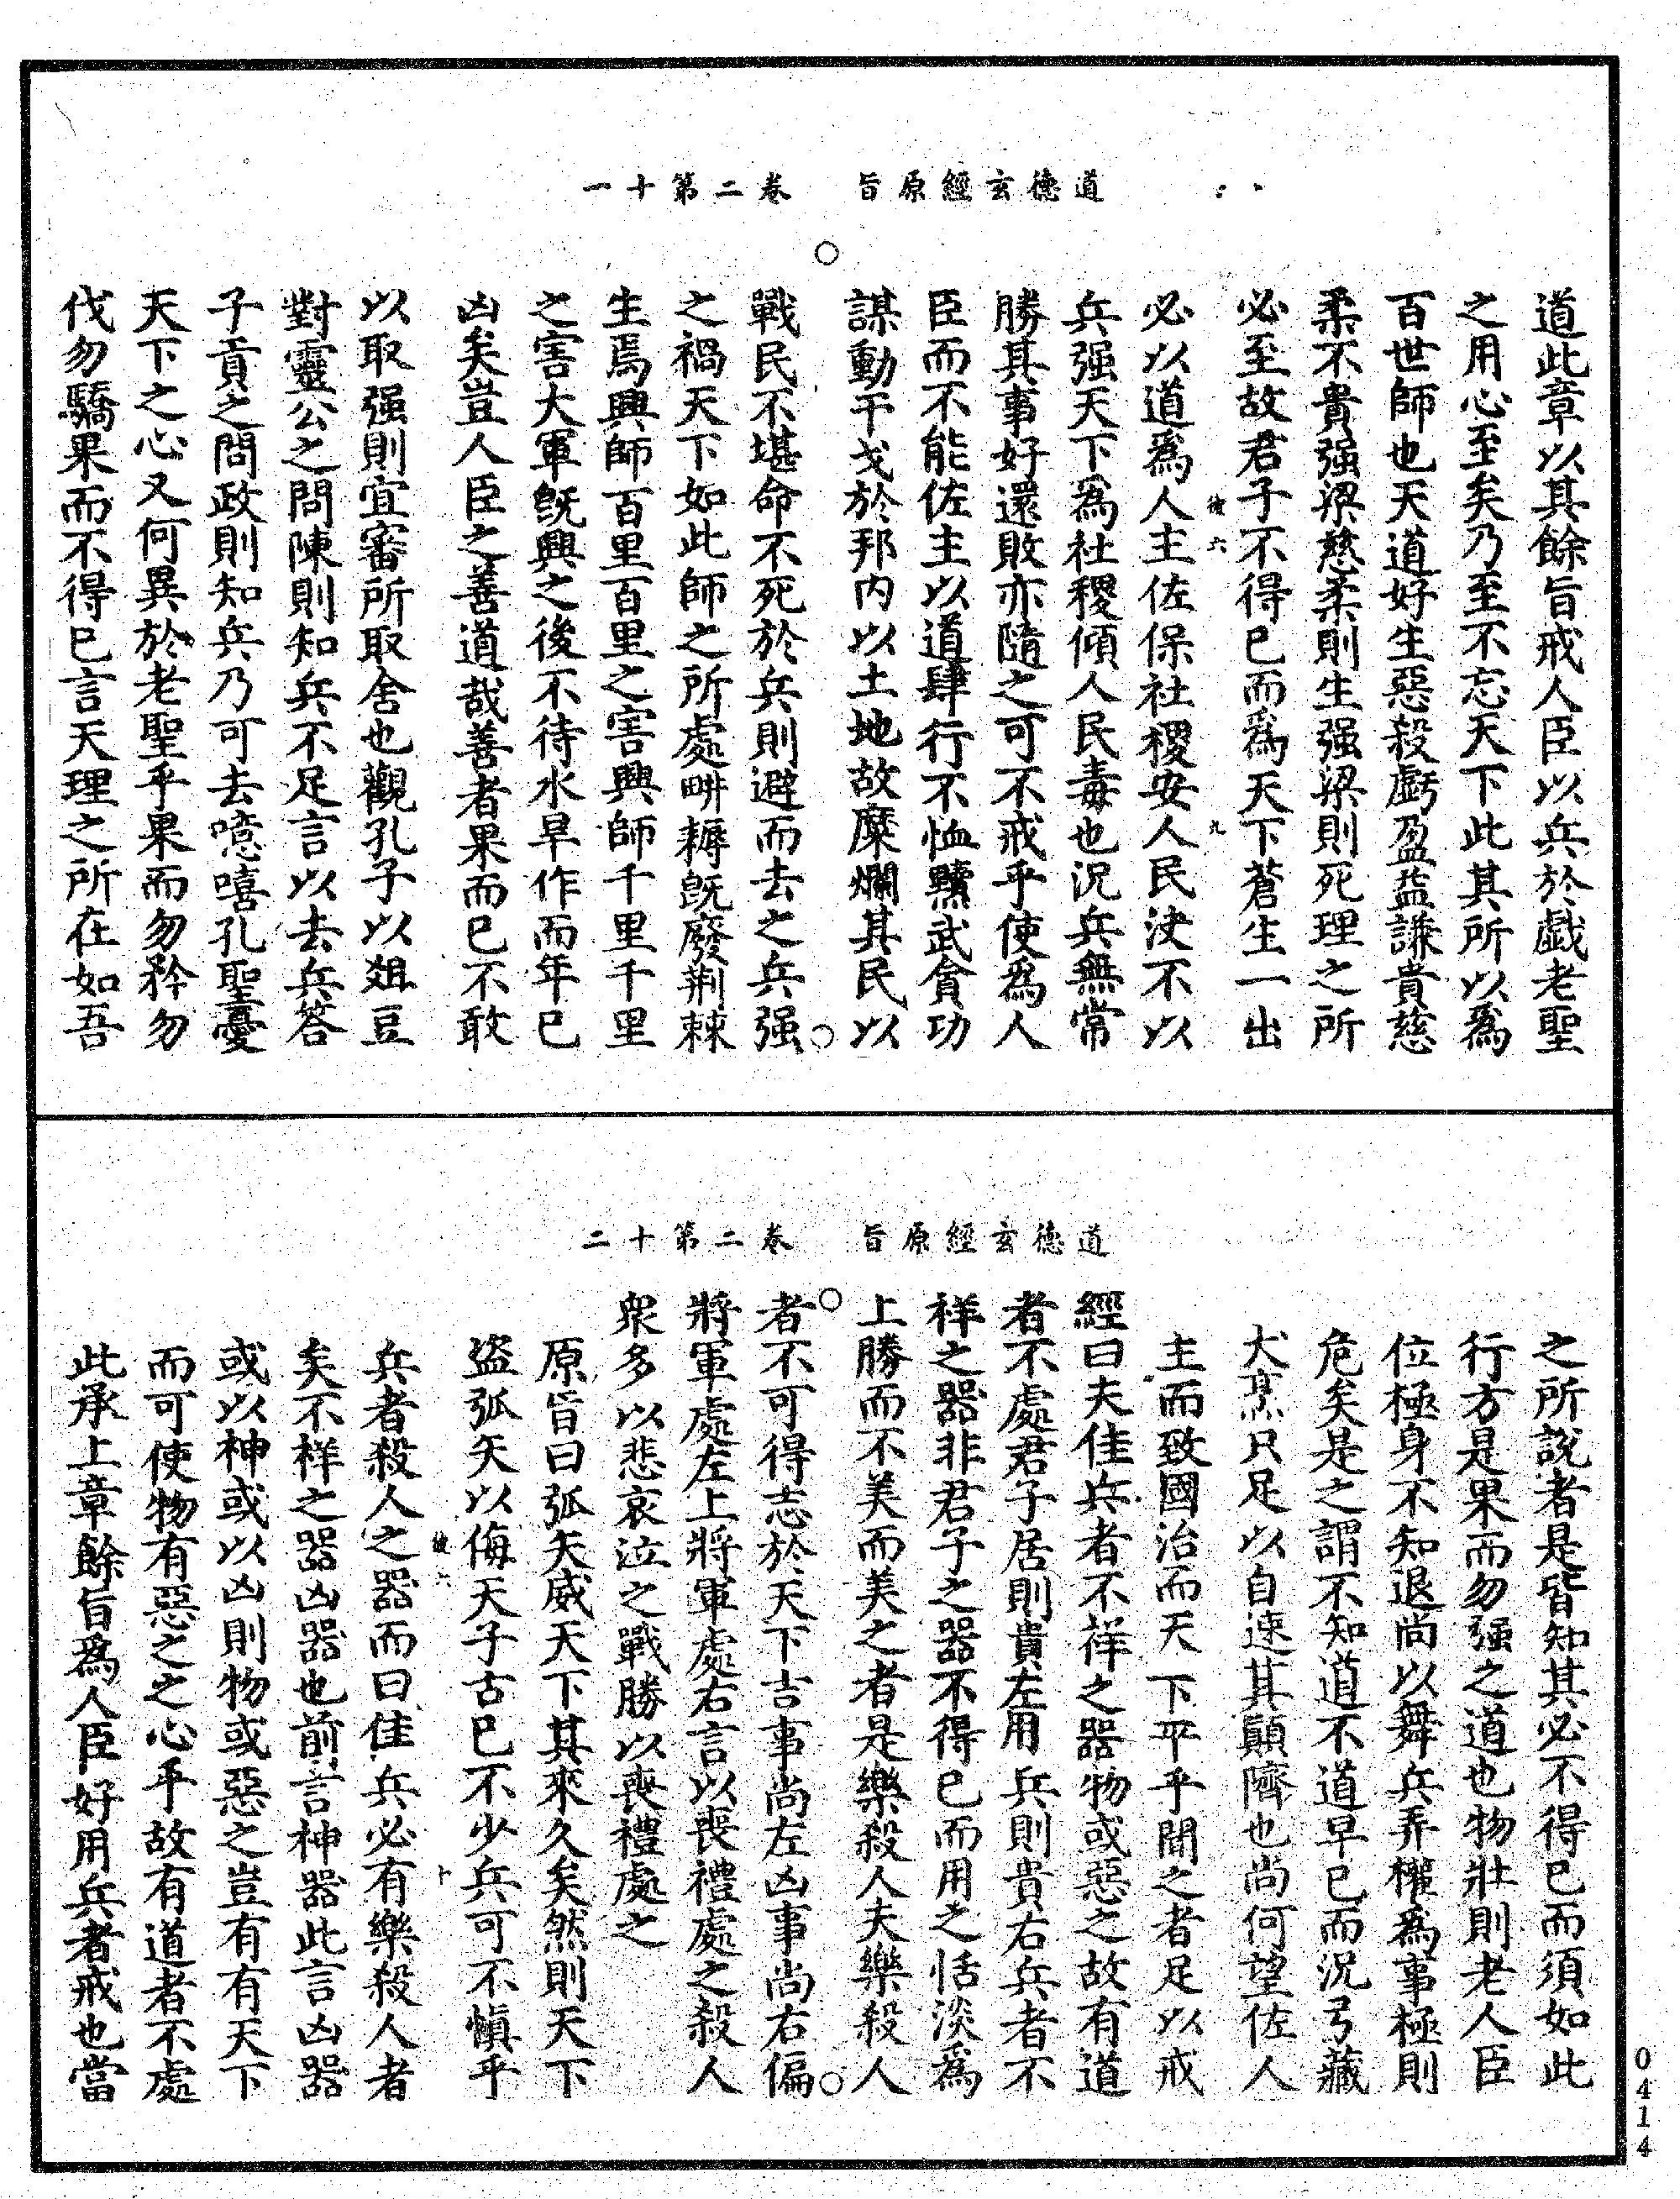 道德玄經原旨　卷二第十一
道此章以其餘旨戒人臣以兵於戯老聖
之用心至矣乃至不忘天下此其所以爲
百世師也天道好生惡殺虧盈益謙貴慈
柔不貴强梁慈柔則生强梁則死理之所
必至故君子不得已而爲天下蒼生一出
必以道爲人主佐保社稷安人民決不以
兵强天下爲社稷傾人民毒也況兵無常
勝其事好還敗亦隨之可不戒乎使爲人
臣而不能佐主以道肆行不恤黷武貪功
謀動干戈於邦内以土地故糜爛其民以
戰民不堪命不死於兵則避而去之兵强
之禍天下如此師之所處畊耨旣廢荆棘
生焉興師百里百里之害興師千里千里
之害大軍旣興之後不待水旱作而年已
凶矣豈人臣之善道哉善者果而已不敢
以取强則宜審所取舍也觀孔子以俎豆
對靈公之問陳則知兵不足言以去兵答
子貢之問政則知兵乃可去噫嘻孔聖憂
天下之心又何異於老聖乎果而勿矜勿
伐勿驕果而不得已言天理之所在如吾
道德玄經原旨　卷二第十二
之所說者是皆知其必不得已而須如此
行方是果而勿强之道也物壯則老人臣
位極身不知退尚以舞兵弄權爲事極則
危矣是之謂不知道不道早已而況弓藏
犬烹只足以自速其顚隮也尚何望佐人
主而致國治而天下平乎聞之者足以戒
經曰夫佳兵者不祥之器物或惡之故有道
者不處君子居則貴左用兵則貴右兵者不
祥之器非君子之器不得已而用之恬淡爲
上勝而不美而美之者是樂殺人夫樂殺人
者不可得志於天下吉事尚左凶事尚右偏
將軍處左上將軍處右言以喪禮處之殺人
衆多以悲哀泣之戰勝以喪禮處之
原旨曰弧矢威天下其來久矣然則天下
盜弧矢以侮天子古已不少兵可不愼乎
兵者殺人之器而曰佳兵必有樂殺人者
矣不祥之器凶器也前言神器此言凶器
或以神或以凶則物或惡之豈有有天下
而可使物有惡之之心乎故有道者不處
此承上章餘旨爲人臣好用兵者戒也當
0414